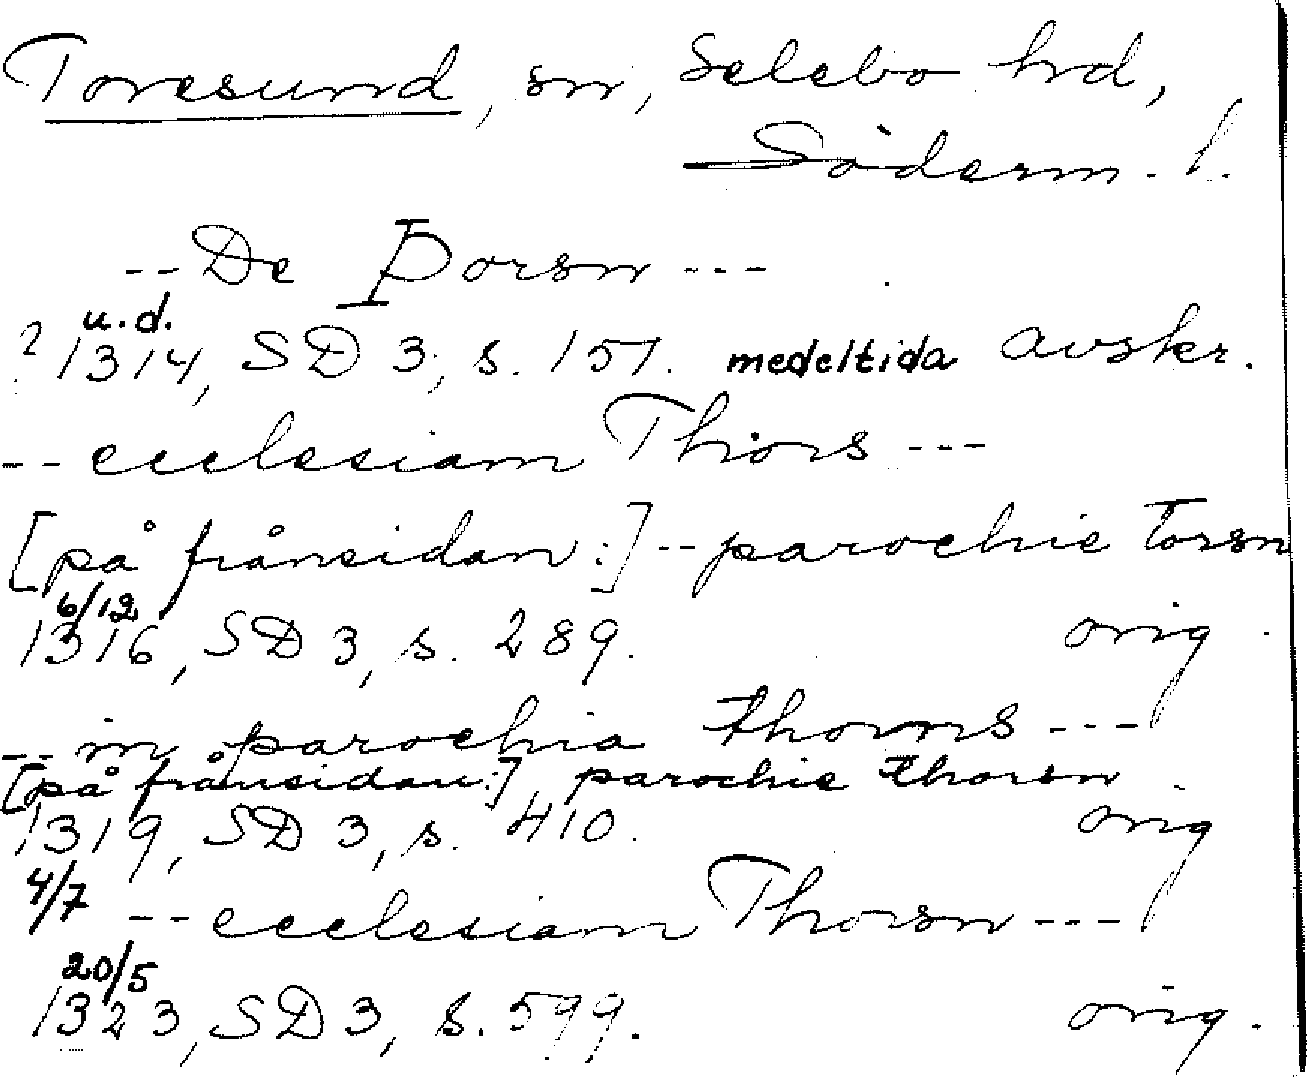 Toresund, sn, Selebo hrd,
Söderm. l.
-- De Þorsn ---
u.d.
? 1314, SD 3, s. 157. medeltida avskr.
-- ecclesiam Thors ---
[på frånsidan:] -- parochie Torsn
6/12
1316, SD 3, s. 289. orig.
-- in parochia thorns ---
[på frånsidan:] parochie thorsn
1319, SD 3, s. 410. orig
4/7 -- ecclesiam Thorsn ---
20/5
1323, SD 3, s. 599. orig.